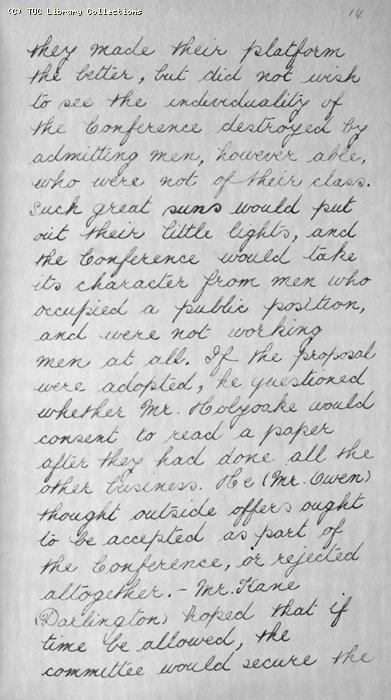 (C) TUC Library Collections
14
they made their platform
the better, but did not wish
to see the individuality of
the Conference destroyed by
admitting men, however able,
who were not of their class.
Such great suns would put
out their little lights, and
the Conference would take
its character from men who
occupied a public position,
and were not working
men at all. If the proposal
were adopted, he questioned
whether Mr. Holyoake would
consent to read a paper
after they had done all the
other business. He (Mr. Owen)
thought outside offers ought
to be accepted as part of
the Conference, or rejected
altogether. - Mr. Kane
(Darlington) hoped that if
time be allowed, the
committee would secure the